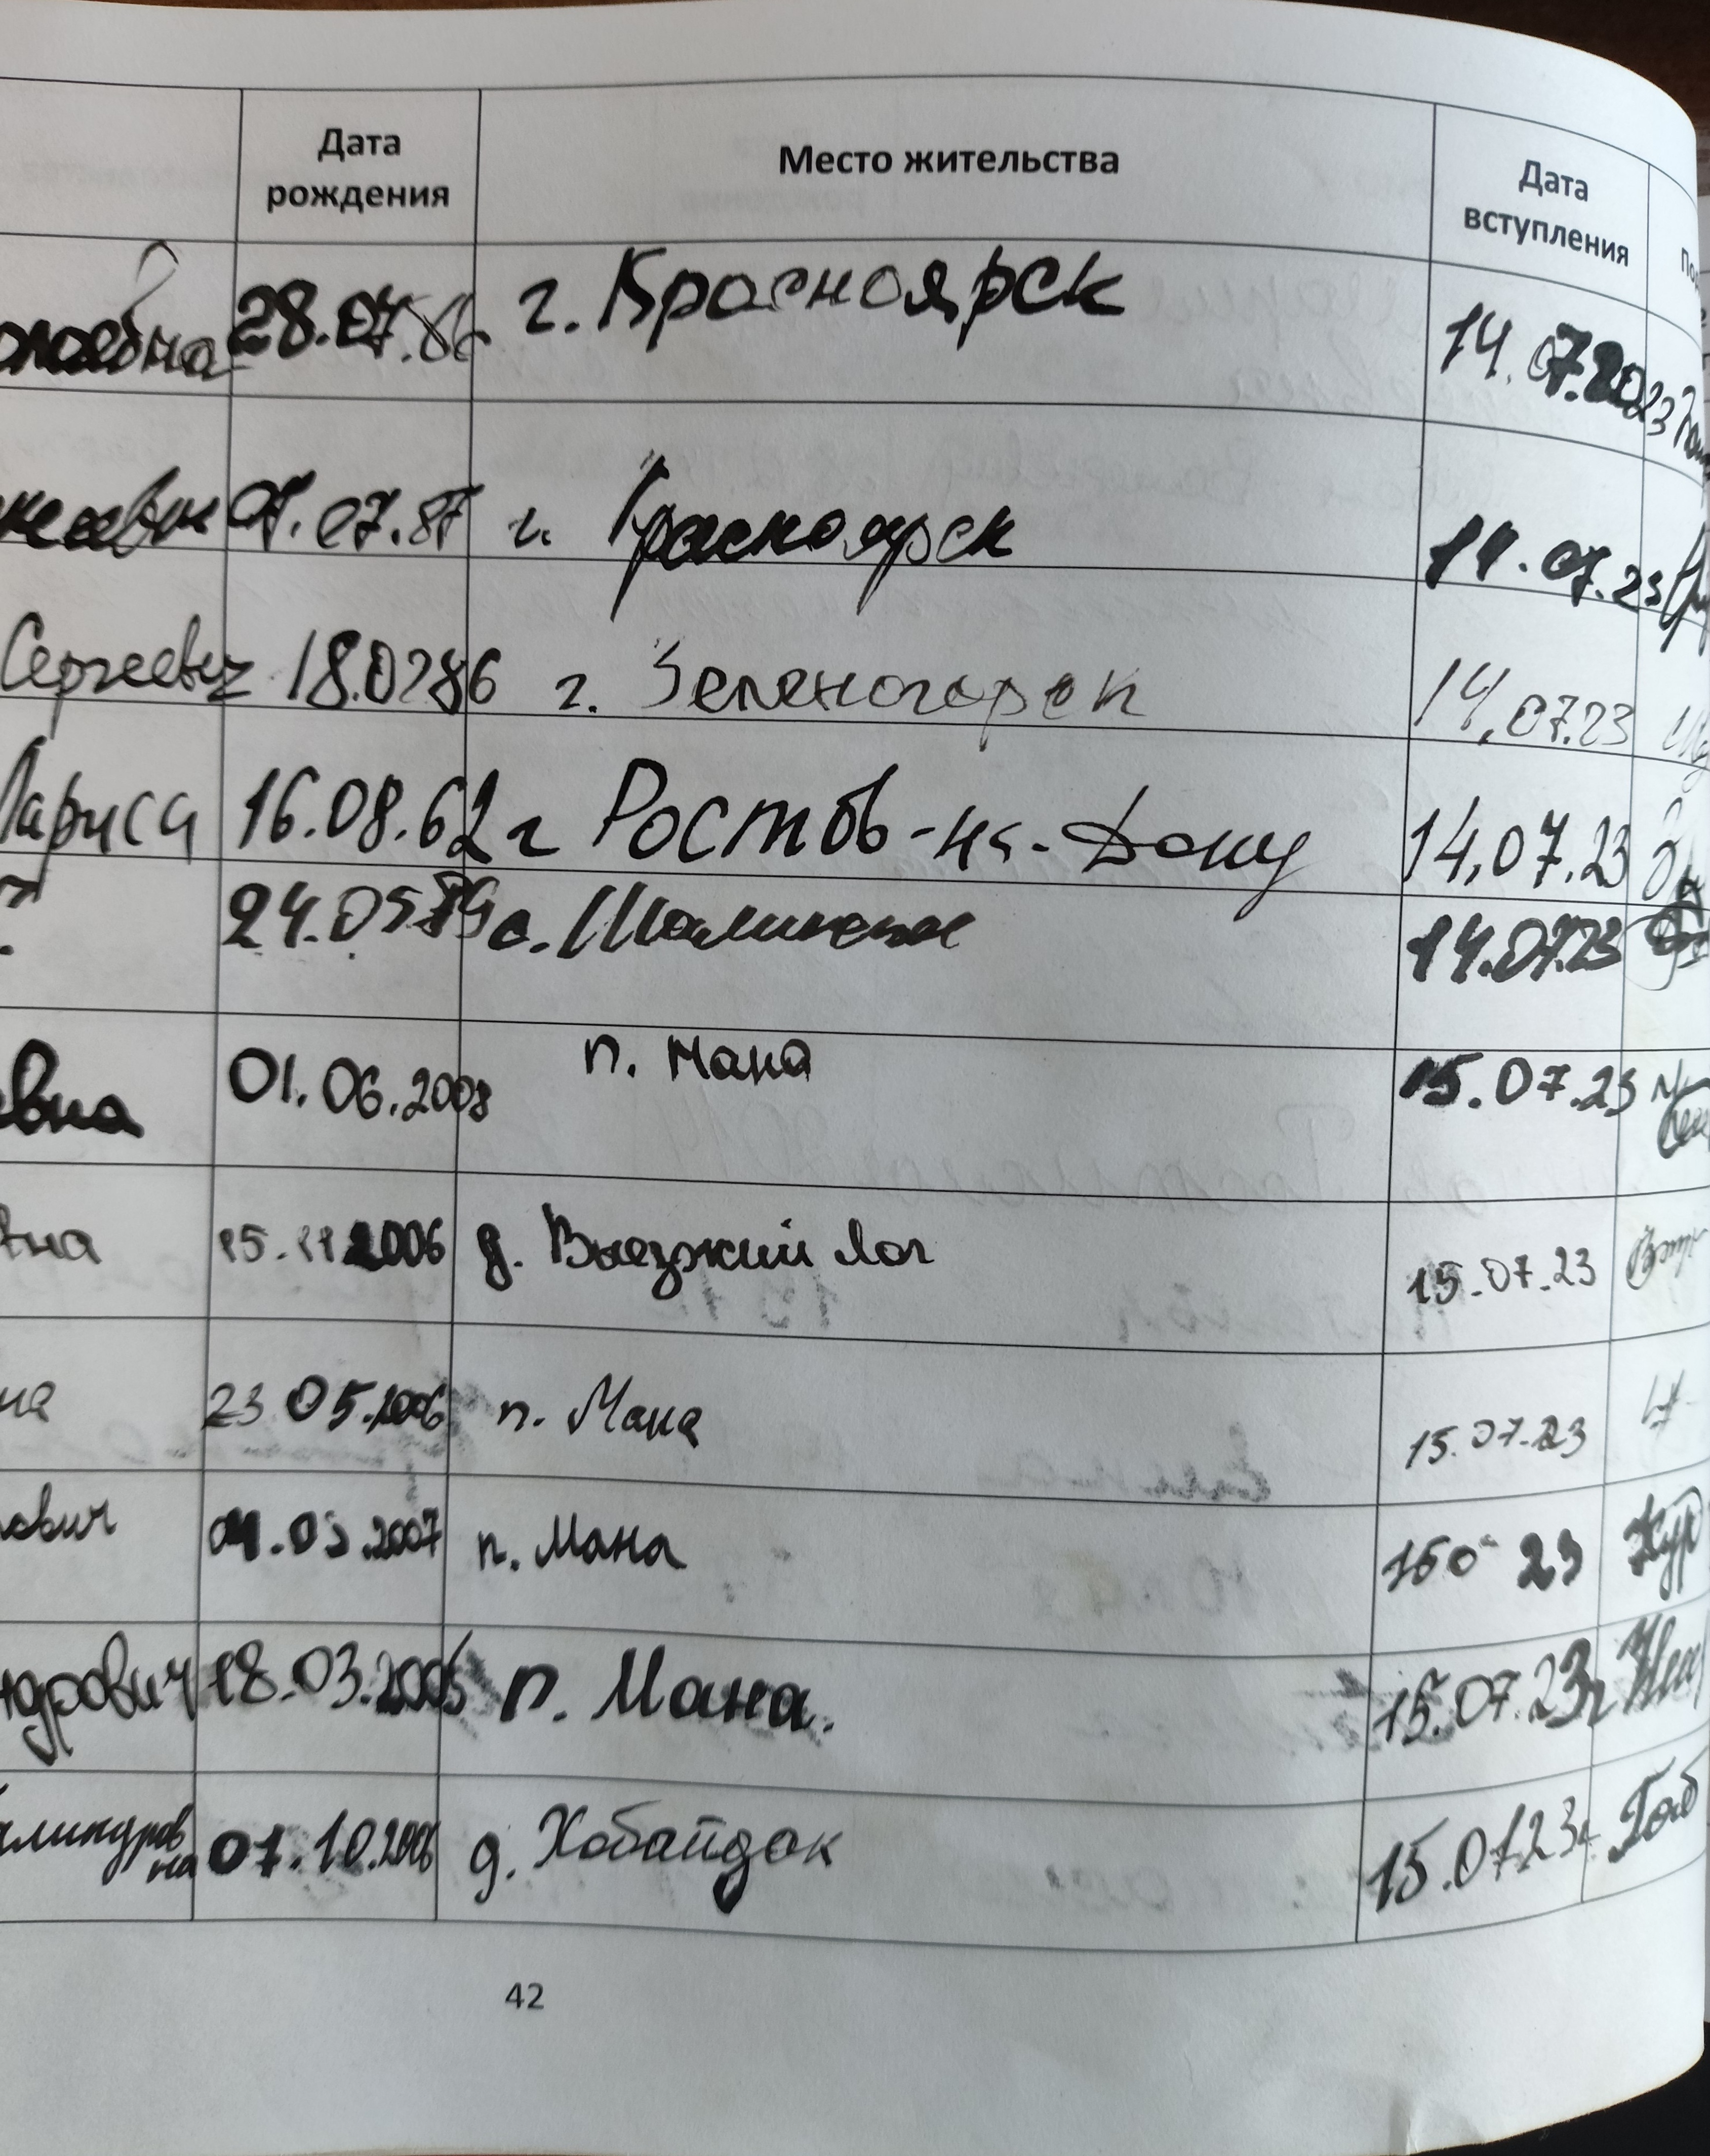 Дата рождения Место жительства Дата вступления
28.07.86 г. Красноярск 14.07.2023
07.07.87 г. Красноярск 14.07.23
Сергеевич 18.0286 г. Зеленогорск 14,07.23
Лариса 16.08.62 г Ростов-на-Дону 14,07.23
24.05 с. Шалинское 14.07.23
вна 01.06.2008 п. Мана 15.07.23
вна 15.11.2006 д. Выезжий Лог 15.07.23
на 23 05.2006 п. Мана 15.07.23
ович 2007 п. Мана 23
ндрович 18.03.2005 п. Мана. 15.07.23г
на 07.10.2006 д. Хабайдак
42